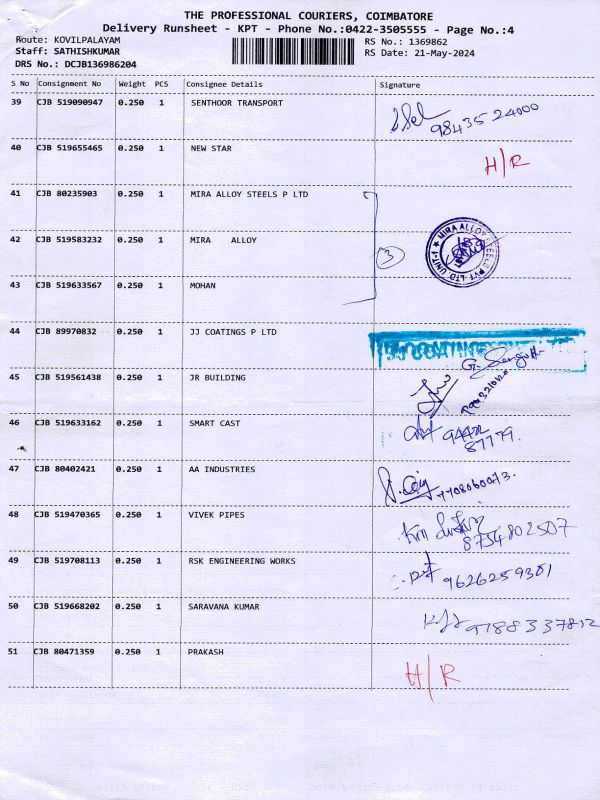 THE PROFESSIONAL COURIERS, COIMBATORE
Delivery Runsheet - KPT - Phone No.:0422-3505555 - Page No.:4
Route: KOVILPALAYAM RS No.: 1369862
Staff: SATHISHKUMAR RS Date: 21-May-2024
DRS No.: DCJB136986204
S No Consignment No Weight PCS Consignee Details Signature
39 CJB 519090947 0.250 1 SENTHOOR TRANSPORT
98435 24000
40 CJB 519655465 0.250 1 NEW STAR H/R
41 CJB 80235903 0.250 1 MIRA ALLOY STEELS P LTD
42 CJB 519583232 0.250 1 MIRA ALLOY 3 MIRA ALLOY STEELS PVT LTD UNIT-1
43 CJB 519633567 0.250 1 MOHAN
44 CJB 89970832 0.250 1 JJ COATINGS P LTD
45 CJB 519561438 0.250 1 JR BUILDING
46 CJB 519633162 0.250 1 SMART CAST 94422
87779.
47 CJB 80402421 0.250 1 AA INDUSTRIES
7708060073.
48 CJB 519470365 0.250 1 VIVEK PIPES
8754802507
49 CJB 519708113 0.250 1 RSK ENGINEERING WORKS
9626259301
50 CJB 519668202 0.250 1 SARAVANA KUMAR
9788337812
51 CJB 80471359 0.250 1 PRAKASH H/R